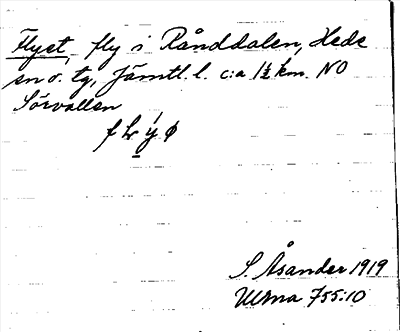 Flyet, fly i Rånddalen, Hede
sn o. tg, Jämtl. l. c:a 1½ km. NO
Sörvallen
S. Åsander 1919
ULMA 755:10